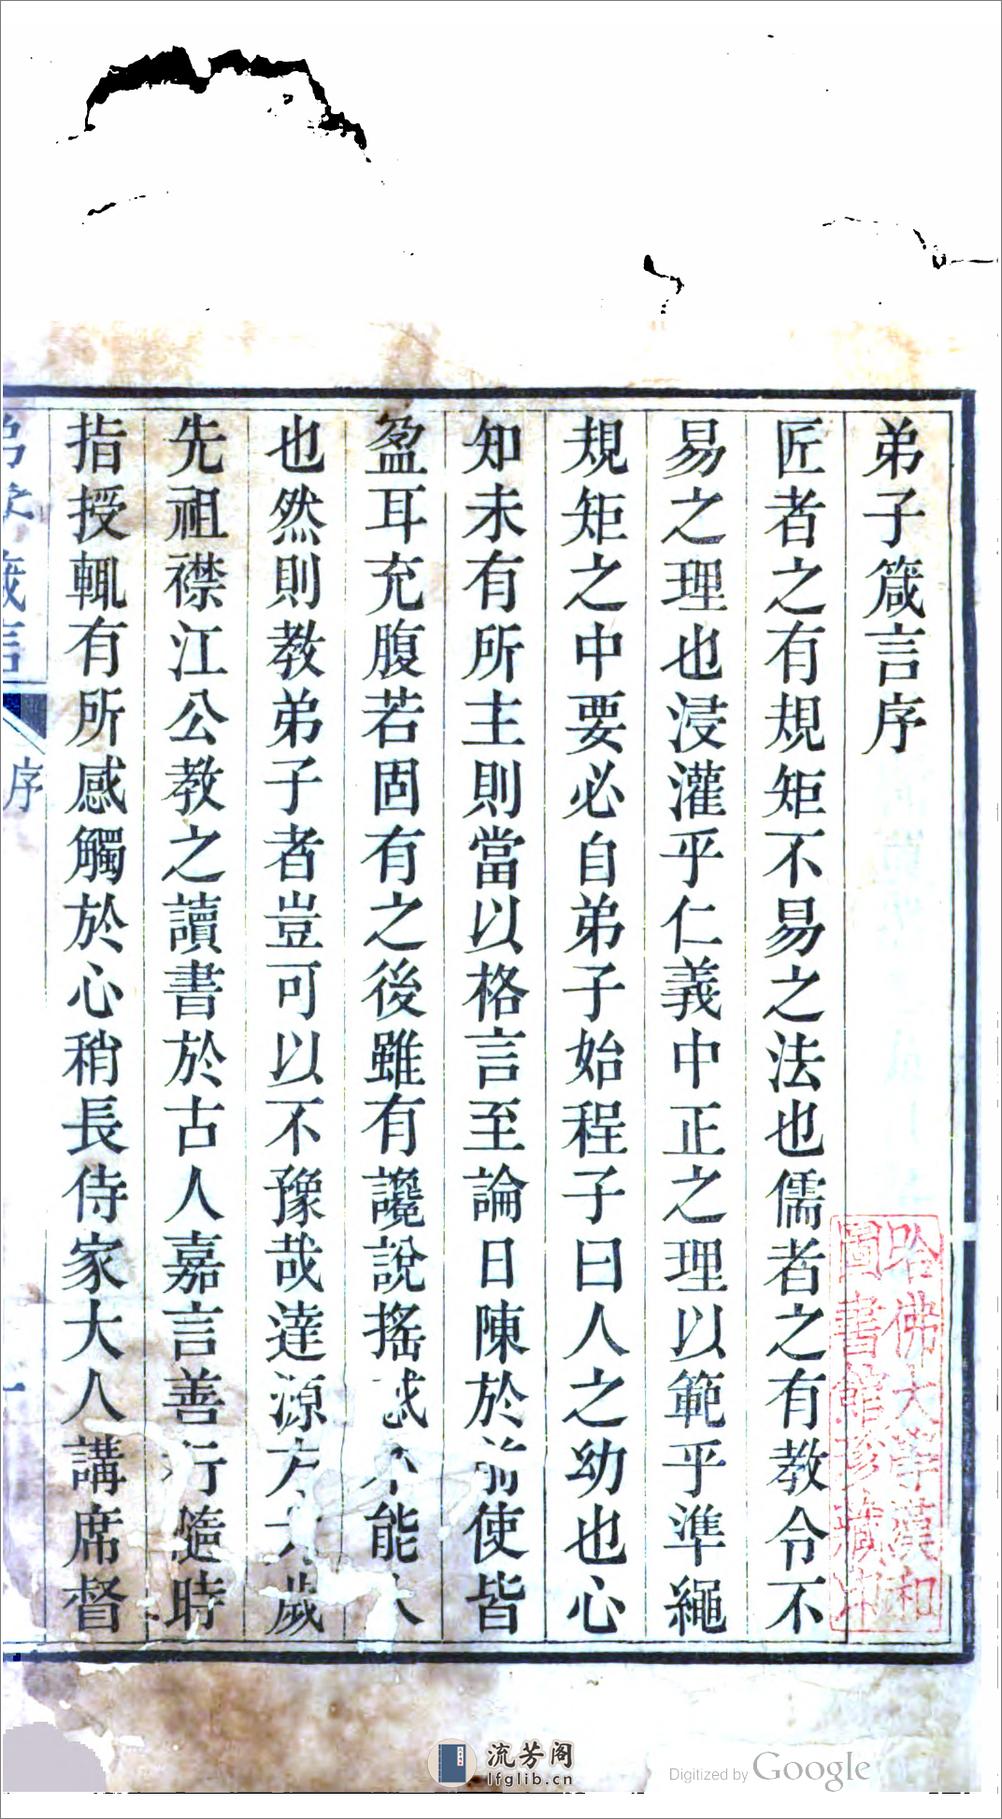 弟子箴言序
匠者之有規矩不易之法也儒者之有教令不
易之理也浸灌乎仁義中正之理以範乎準繩
規矩之中要必自弟子始程子曰人之幼也心
知未有所主則當以格言至論日陳於前使皆
盈耳充腹若固有之後雖有讒說搖惑不能入
也然則教弟子者豈可以不豫哉達源方 歲
先祖襟江公教之讀書於古人嘉言善行隨時
指授輒有所感觸於心稍長侍家大人講席督
弟子箴言
序
一
哈佛大學漢和
圖書館珍藏印
流芳阁
lfglib.cn
Digitized by Google